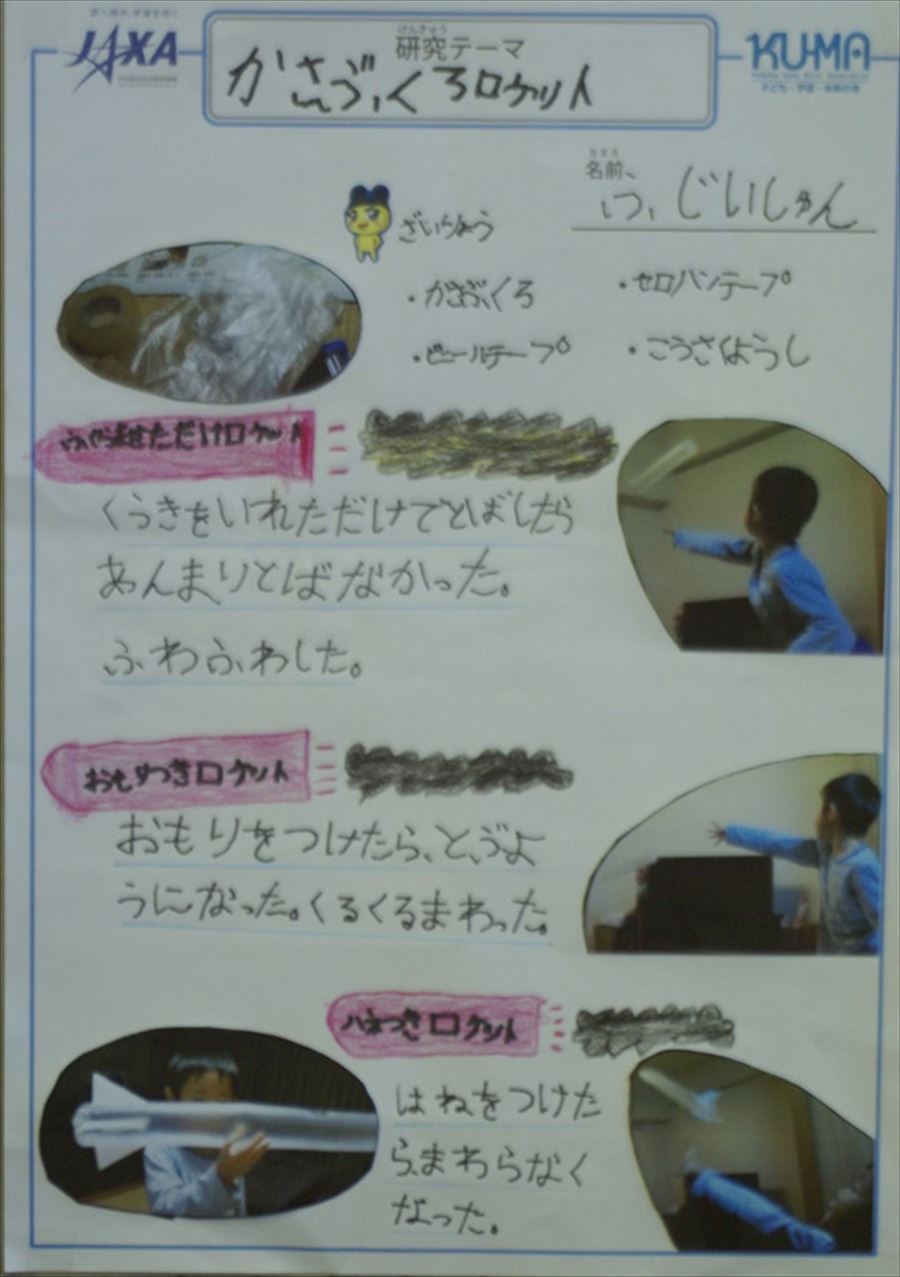 JAXA
けんきゅう
研究テーマ
かさぶくろロケット
KU-MA
子ども・宇宙・未来の会
なまえ
名前
いつ じいしゅん
ざいりょう
・かさぶくろ
・セロハンテープ
・ビニールテープ
・こうさくようし
ふくらませただけロケット
くうきをいれただけでとばしたら
あんまりとばなかった。
ふわふわした。
おもりつきロケット
おもりをつけたら、とぶよ
うになった。くるくるまわった。
ハネつきロケット
はねをつけた
らまわらなく
なった。